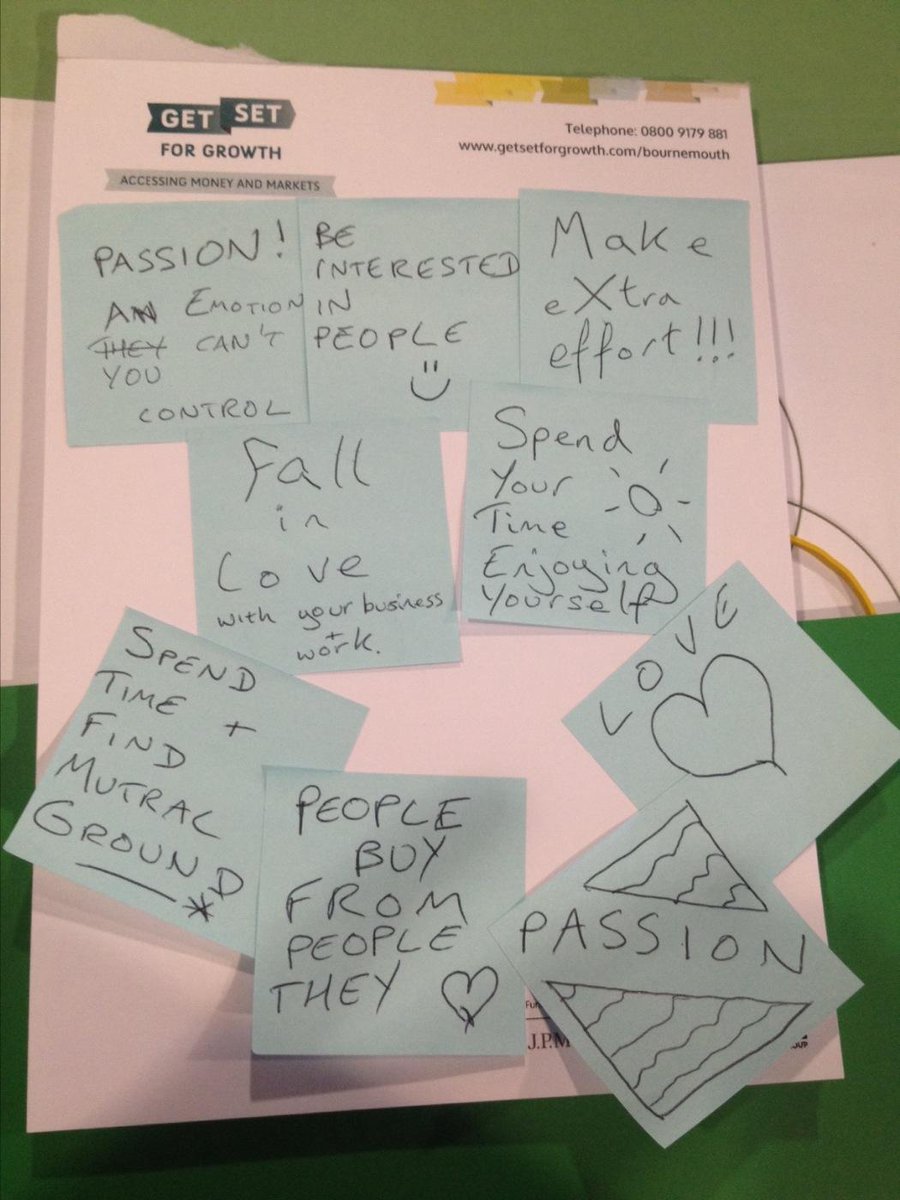 GET SET
FOR GROWTH
ACCESSING MONEY AND MARKETS
Telephone: 0800 9179 881
www.getsetforgrowth.com/bournemouth
PASSION!
AN EMOTION
THEY CAN'T
YOU
CONTROL
BE
INTERESTED
IN
PEOPLE
Make
eXtra
effort!!!
Fall
in
Love
with your business
+
work.
Spend
Your
Time
Enjoying
Yourself
SPEND
TIME +
FIND
MUTRAL
GROUND
*
LOVE
PEOPLE
BUY
FROM
PEOPLE
THEY
PASSION
J.P.M